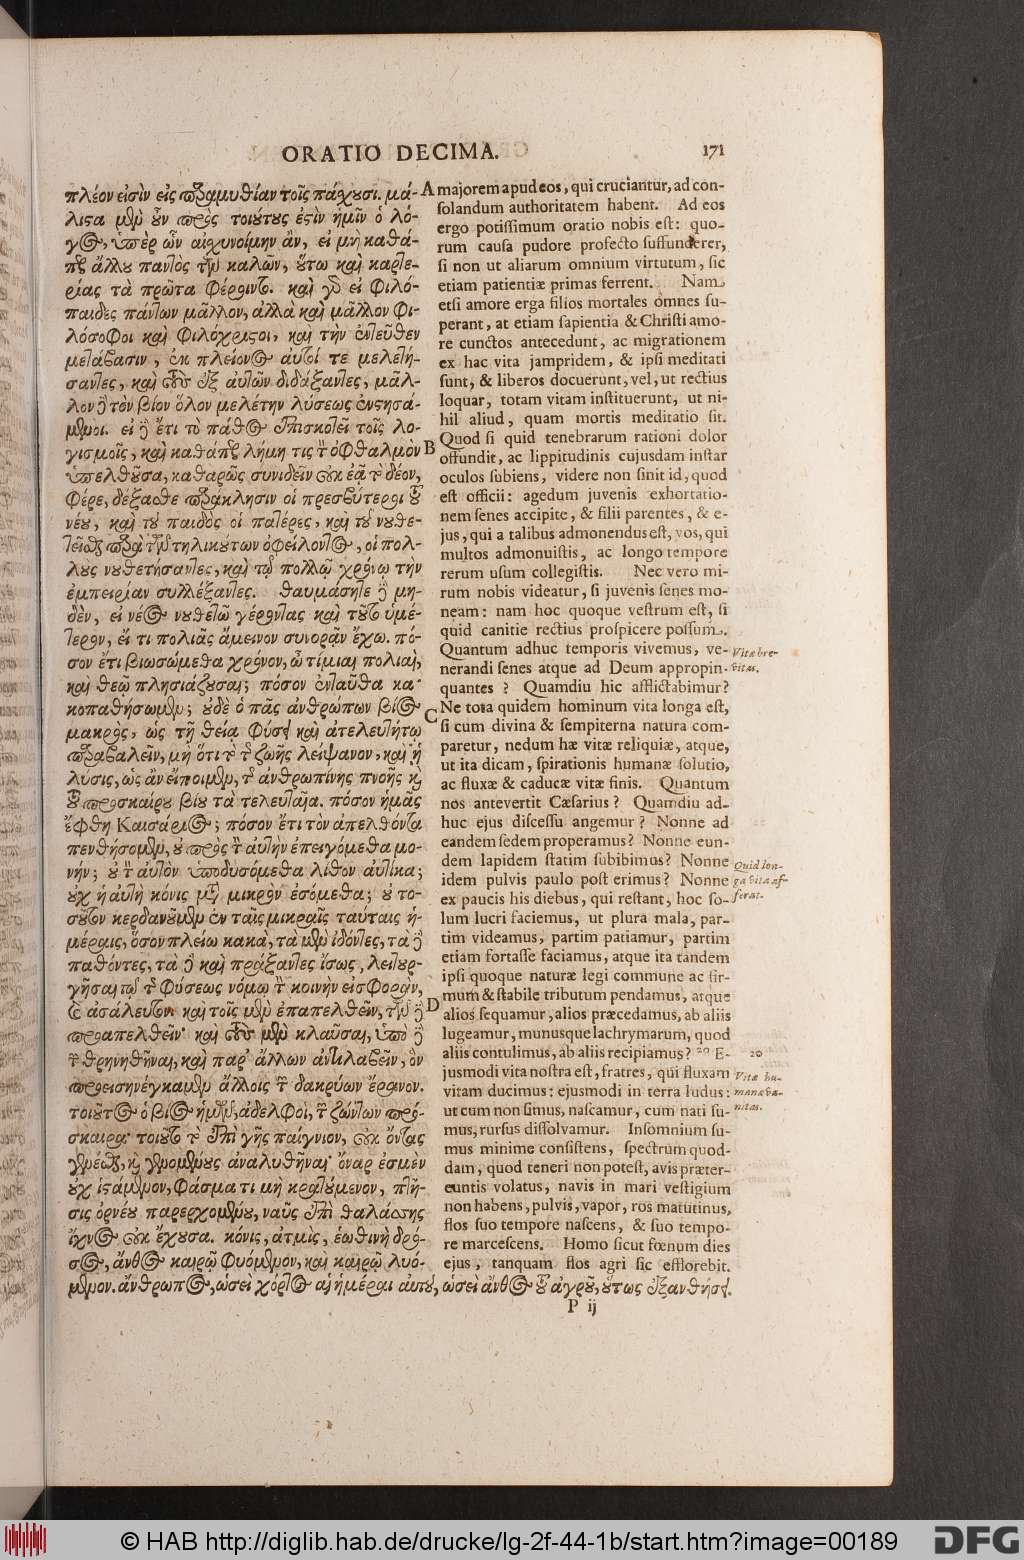 ORATIO DECIMA. 171
πλέον εἰσὶν εἰς παραμυθίαν τοῖς πάχουσι. μά-
λιστα μὲν οὖν πρὸς τοιούτους ἐστὶν ἡμῖν ὁ λό-
γος, ὑπὲρ ὧν αἰσχυνοίμην ἂν, εἰ μὴ καθά-
περ ἄλλου παντὸς τῶν καλῶν, οὕτω καὶ καρτε-
ρίας τὰ πρῶτα φέροιντο. καὶ γὰρ εἰ φιλό-
παιδες πάντων μᾶλλον, ἀλλὰ καὶ μᾶλλον φι-
λόσοφοι καὶ φιλόχριστοι, καὶ τὴν ἐντεῦθεν
μετάβασιν, ἐκ πλείονος αὐτοί τε μελετή-
σαντες, καὶ τοὺς ἐξ αὐτῶν διδάξαντες, μᾶλ-
λον δὲ τὸν βίον ὅλον μελέτην λύσεως ἐνστησά-
μενοι. εἰ δὲ ἔτι τὸ πάθος ἐπισκοτεῖ τοῖς λο-
γισμοῖς, καὶ καθάπερ λήμη τις τὸν ὀφθαλμὸν
ὑπελθοῦσα, καθαρῶς συνιδεῖν οὐκ ἐᾷ τὸ δέον,
φέρε, δέξασθε παράκλησιν οἱ πρεσβύτεροι τοῦ
νέου, καὶ τοῦ παιδὸς οἱ πατέρες, καὶ τοῦ νουθε-
τεῖσθαι παρὰ τῶν τηλικούτων ὀφείλοντος, οἱ πολ-
λοὺς νουθετήσαντες, καὶ τῷ πολλῷ χρόνῳ τὴν
ἐμπειρίαν συλλέξαντες. θαυμάσητε δὲ μη-
δὲν, εἰ νέος νουθετῶ γέροντας καὶ τοῦτο ὑμέ-
τερον, εἴ τι πολιᾶς ἄμεινον συνορᾷν ἔχω. πό-
σον ἔτι βιωσώμεθα χρόνον, ὦ τίμιαι πολιαὶ,
καὶ θεῷ πλησιάζουσαι; πόσον ἐνταῦθα κα-
κοπαθήσωμεν; οὐδὲ ὁ πᾶς ἀνθρώπων βίος
μακρὸς, ὡς τῇ θείᾳ φύσει καὶ ἀτελευτήτῳ
παραβαλεῖν, μὴ ὅτι τὸ τῆς ζωῆς λείψανον, καὶ ἡ
λύσις, ὡς ἂν εἴποιμεν, τῆς ἀνθρωπίνης πνοῆς καὶ
τοῦ προσκαίρου βίου τὰ τελευταῖα. πόσον ἡμᾶς
ἔφθη Καισάριος; πόσον ἔτι τὸν ἀπελθόντα
πενθήσομεν, οὐ πρὸς τὴν αὐτὴν ἐπειγόμεθα μο-
νήν; οὐ τὸν αὐτὸν ὑποδυσόμεθα λίθον αὐτίκα;
οὐχ ἡ αὐτὴ κόνις μετὰ μικρὸν ἐσόμεθα; οὐ το-
σοῦτον κερδανοῦμεν ἐν ταῖς μικραῖς ταύταις ἡ-
μέραις, ὅσον πλείω κακὰ, τὰ μὲν ἰδόντες, τὰ δὲ
παθόντες, τὰ δὲ καὶ πράξαντες ἴσως, λειτουρ-
γῆσαι τῷ τῆς φύσεως νόμῳ τὴν κοινὴν εἰσφορὰν,
καὶ ἀσάλευτον· καὶ τοῖς μὲν ἐπαπελθεῖν, τῶν δὲ
προαπελθεῖν· καὶ τοὺς μὲν κλαῦσαι, ὑπὸ δὲ
τῶν θρηνηθῆναι, καὶ παρ' ἄλλων ἀντιλαβεῖν, ὃν
προεισηνέγκαμεν ἄλλοις τῶν δακρύων ἔρανον.
τοιοῦτος ὁ βίος ἡμῶν, ἀδελφοὶ, τῶν ζώντων πρό-
σκαιρα· τοιοῦτο τὸ ἐπὶ γῆς παίγνιον, οὐκ ὄντας
γενέσθαι, καὶ γενομένους ἀναλυθῆναι· ὄναρ ἐσμὲν
οὐχ ἱστάμενον, φάσμα τι μὴ κρατούμενον, πτῆ-
σις ὀρνέου παρερχομένου, ναῦς ἐπὶ θαλάσσης
ἴχνος οὐκ ἔχουσα. κόνις, ἀτμὶς, ἑωθινὴ δρό-
σος, ἄνθος καιρῷ φυόμενον, καὶ καιρῷ λυό-
μενον. ἄνθρωπος, ὡσεὶ χόρτος αἱ ἡμέραι αὐτοῦ, ὡσεὶ ἄνθος τοῦ ἀγροῦ, οὕτως ἐξανθήσει.
A majorem apud eos, qui cruciantur, ad con-
solandum authoritatem habent. Ad eos
ergo potissimum oratio nobis est: quo-
rum causa pudore profecto suffunderer,
si non ut aliarum omnium virtutum, sic
etiam patientiæ primas ferrent. Nam
etsi amore erga filios mortales omnes su-
perant, at etiam sapientia & Christi amo-
re cunctos antecedunt, ac migrationem
ex hac vita jampridem, & ipsi meditati
sunt, & liberos docuerunt, vel, ut rectius
loquar, totam vitam instituerunt, ut ni-
hil aliud, quam mortis meditatio sit.
B Quod si quid tenebrarum rationi dolor
offundit, ac lippitudinis cujusdam instar
oculos subiens, videre non sinit id, quod
est officii: agedum juvenis exhortatio-
nem senes accipite, & filii parentes, & e-
jus, qui a talibus admonendus est, vos, qui
multos admonuistis, ac longo tempore
rerum usum collegistis. Nec vero mi-
rum nobis videatur, si juvenis senes mo-
neam: nam hoc quoque vestrum est, si
quid canitie rectius prospicere possum.
Quantum adhuc temporis vivemus, ve-
nerandi senes atque ad Deum appropin-
quantes? Quamdiu hic afflictabimur?
C Ne tota quidem hominum vita longa est,
si cum divina & sempiterna natura com-
paretur, nedum hæ vitæ reliquiæ, atque,
ut ita dicam, spirationis humanæ solutio,
ac fluxæ & caducæ vitæ finis. Quantum
nos antevertit Cæsarius? Quamdiu ad-
huc ejus discessu angemur? Nonne ad
eandem sedem properamus? Nonne eun-
dem lapidem statim subibimus? Nonne
idem pulvis paulo post erimus? Nonne
ex paucis his diebus, qui restant, hoc so-
lum lucri faciemus, ut plura mala, par-
tim videamus, partim patiamur, partim
etiam fortasse faciamus, atque ita tandem
ipsi quoque naturæ legi commune ac fir-
D mum & stabile tributum pendamus, atque
alios sequamur, alios præcedamus, ab aliis
lugeamur, munusque lachrymarum, quod
aliis contulimus, ab aliis recipiamus? 20 E-
jusmodi vita nostra est, fratres, qui fluxam
vitam ducimus: ejusmodi in terra ludus:
ut cum non simus, nascamur, cum nati su-
mus, rursus dissolvamur. Insomnium su-
mus minime consistens, spectrum quod-
dam, quod teneri non potest, avis præter-
euntis volatus, navis in mari vestigium
non habens, pulvis, vapor, ros matutinus,
flos suo tempore nascens, & suo tempo-
re marcescens. Homo sicut fœnum dies
ejus, tanquam flos agri sic efflorebit.
Vitæ bre-
vitas.
Quid lon-
ga vita af-
ferat.
20
Vitæ hu-
manæ va-
nitas.
P ij
© HAB http://diglib.hab.de/drucke/lg-2f-44-1b/start.htm?image=00189
DFG